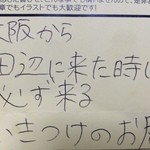 でもイラストでも大歓迎です!
阪から
田辺に来た時に
必ず来る
いきつけのお